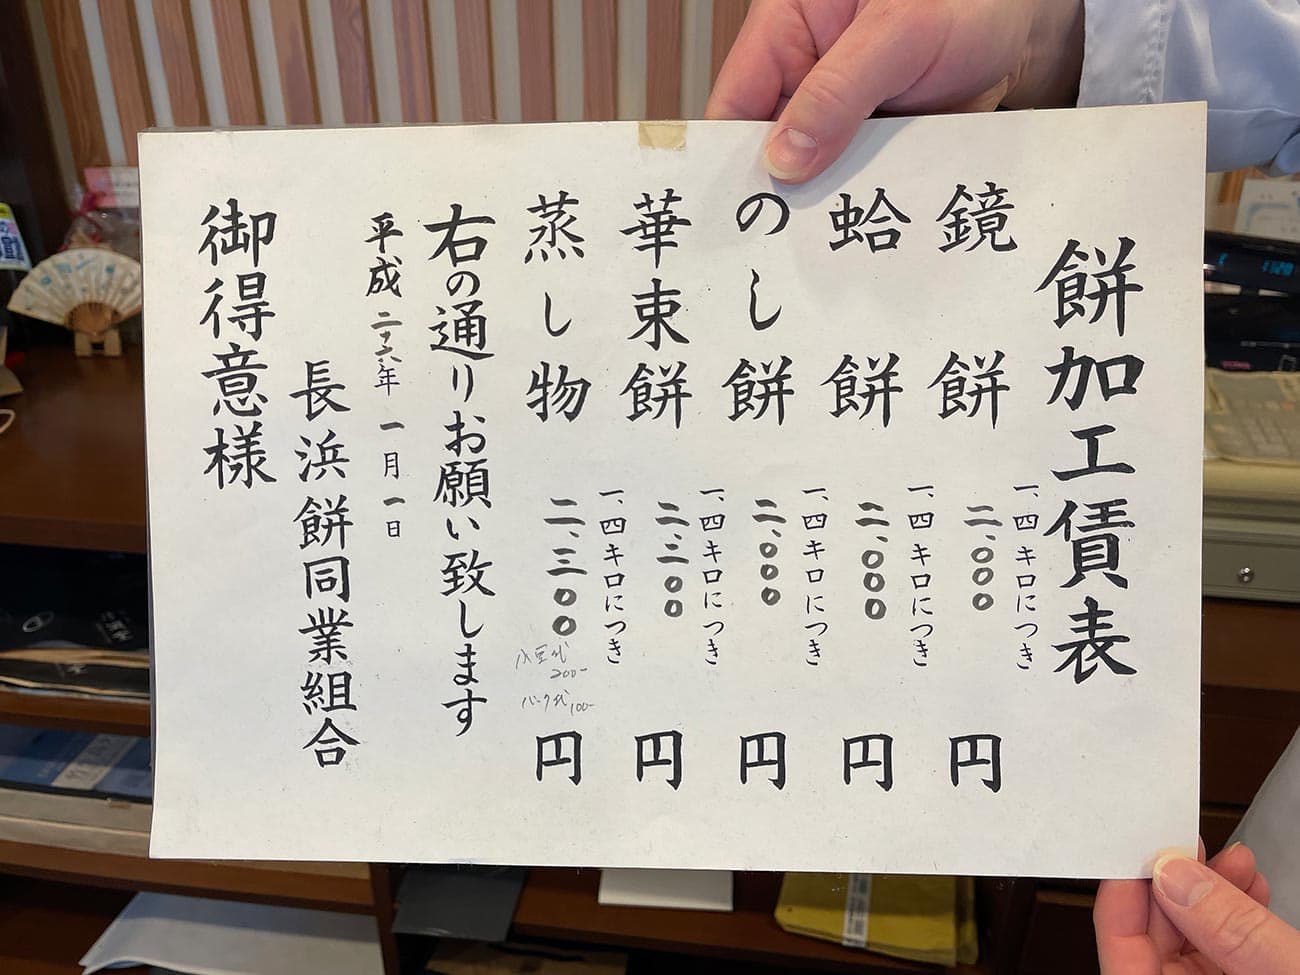 餅加工賃表
鏡餅 一、四キロにつき 二、〇〇〇円
蛤餅 一、四キロにつき 二、〇〇〇円
のし餅 一、四キロにつき 二、〇〇〇円
華束餅 一、四キロにつき 二、二〇〇円
蒸し物 一、四キロにつき 二、三〇〇円
入豆代 200-
パック代 100-
右の通りお願い致します
平成二十六年一月一日
長浜餅同業組合
御得意様